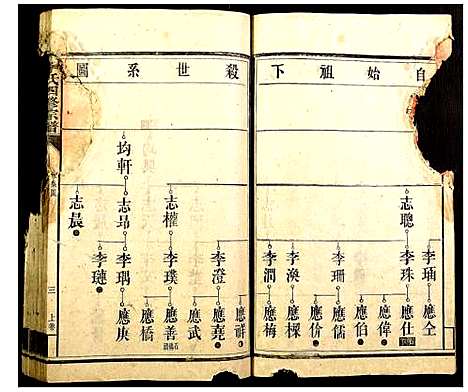 自始祖下殺世系圖
志聰
李瑀 李珠 李珊 李渙 李潤
應仝 應仕 應偉 應伯 應儒 應价 應樑 應梅
均軒
志權 志昂 志晨
李澄 李璞 李瑀 李璉
應祥 應堯 應武 應善 應橋 應庚
氏四修宗譜
三 上卷